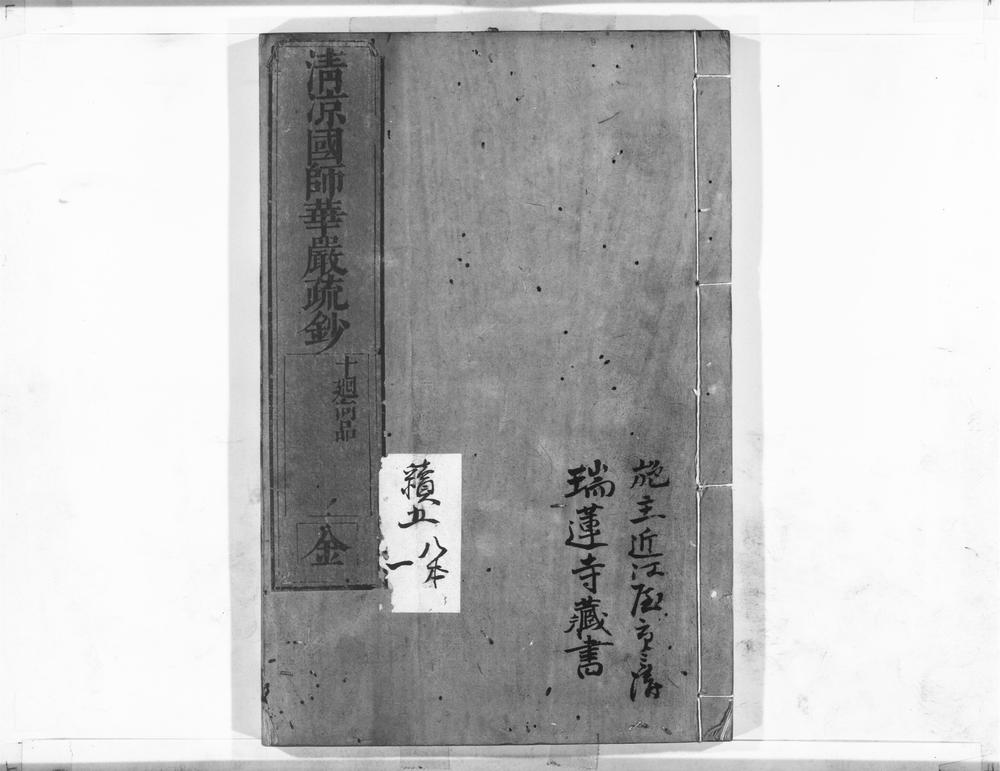 施主近江屋
瑞蓮寺藏書
清凉國師華嚴疏鈔
十廻向品
金
續五
八本
一